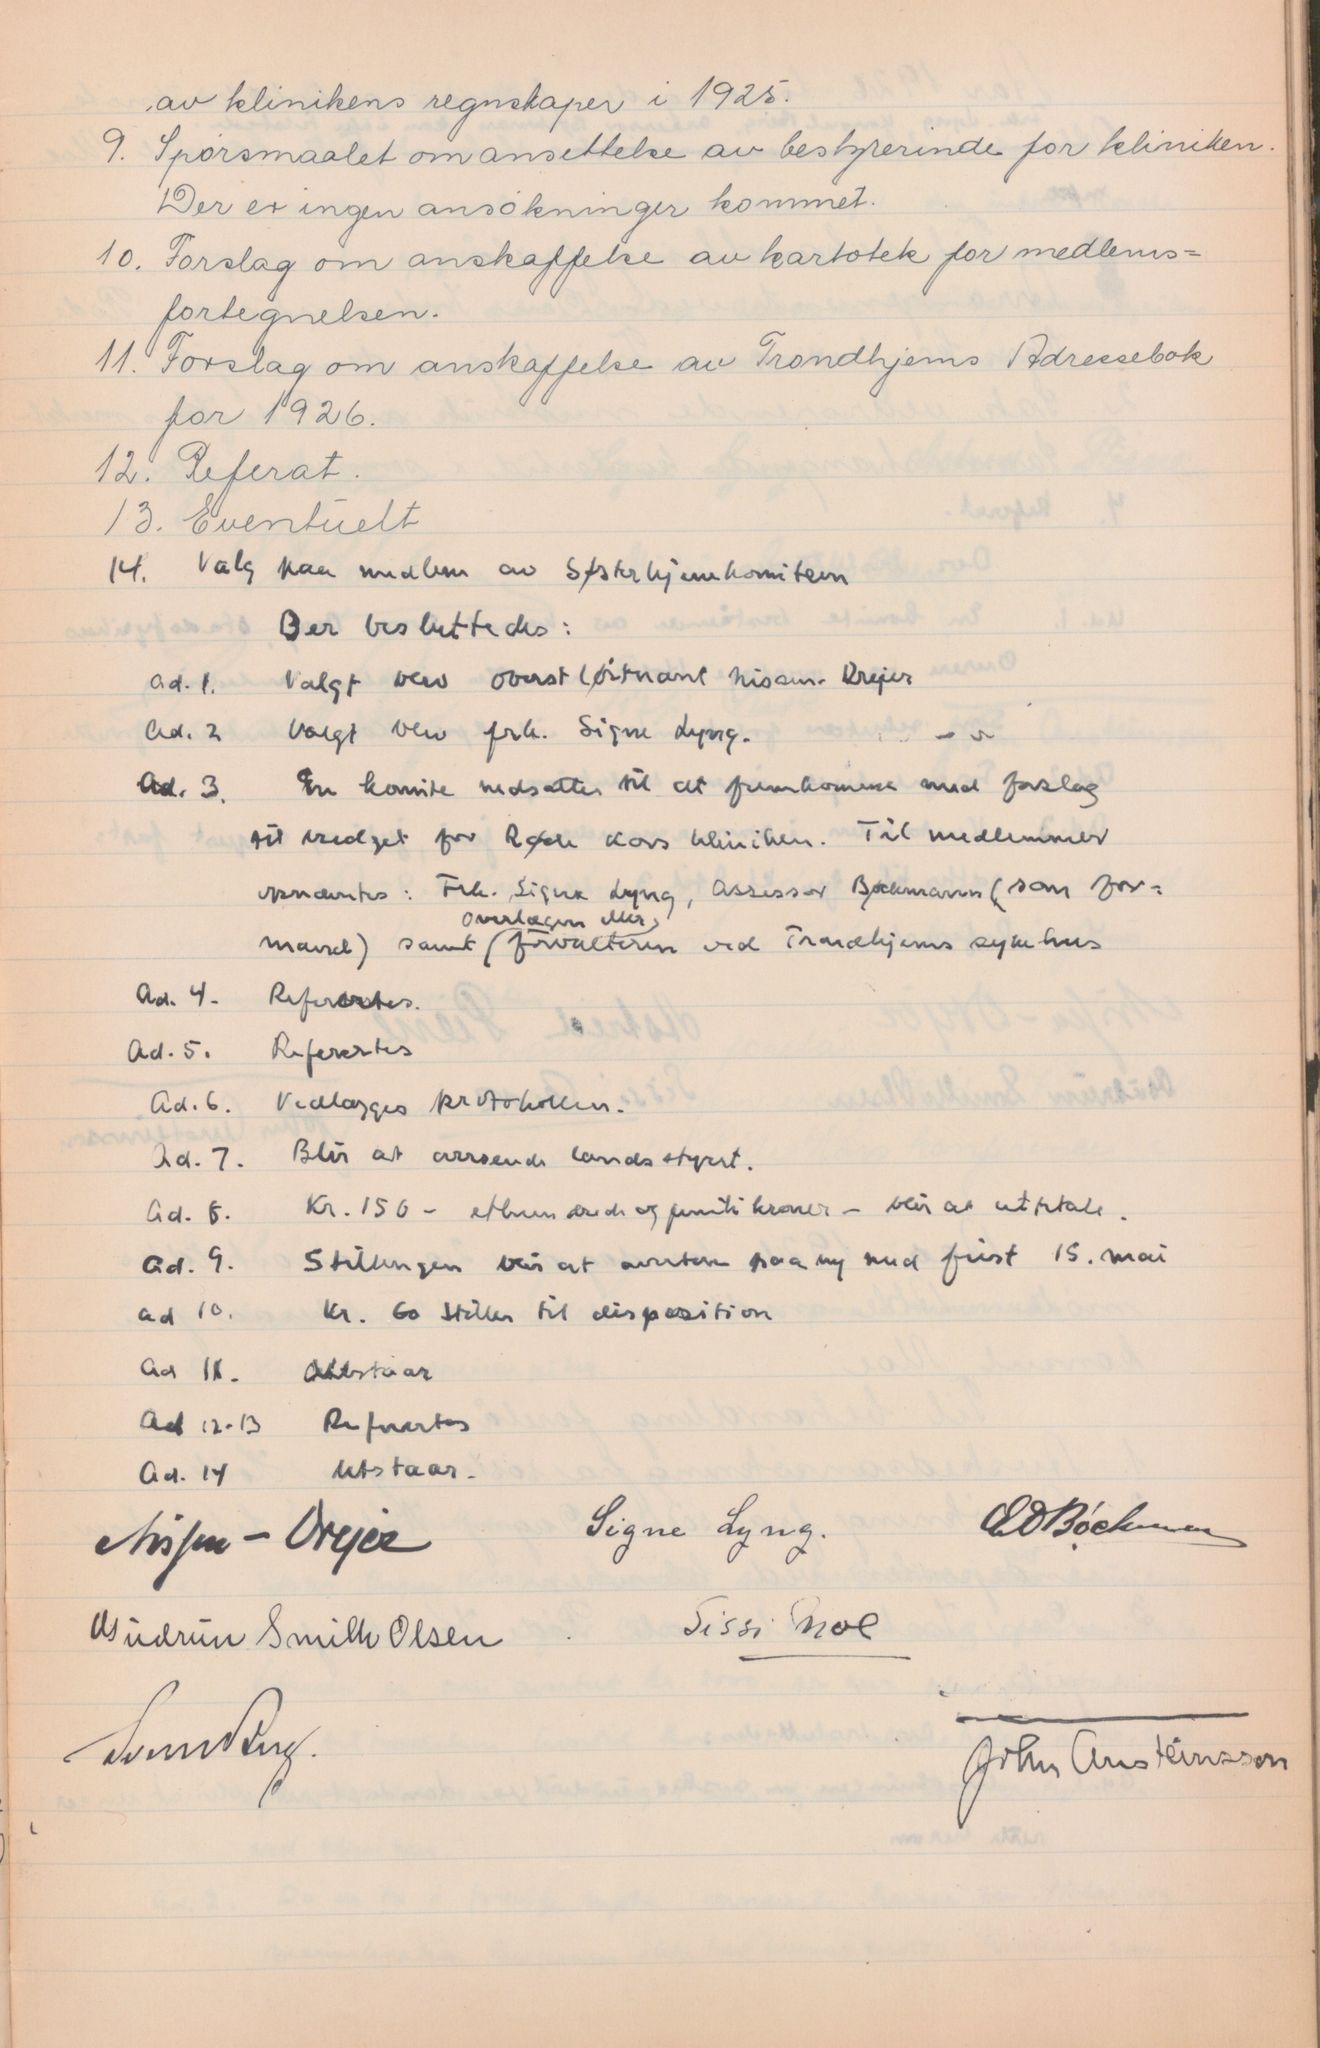 av klinikens regnskaper i 1925.
9. Spörsmaalet om ansettelse av bestyrerinde for kliniken.
Der er ingen ansökninger kommet.
10. Forslag om anskaffelse av kartotek for medlems=
fortegnelsen.
11. Forslag om anskaffelse av Trondhjems Adressebok
for 1926.
12. Referat.
13. Eventuelt
14. Valg paa medlem av Søsterhjemkomiteen
Der besluttedes:
Ad. 1. Valgt blev oberstløitnant Nissen-Drejer
Ad. 2 Valgt blev frk. Signe Lyng.
Ad. 3. En komite nedsættes til at fremkomme med forslag
til vedget for Røde Kors kliniken. Til medlemmer
opnævntes: Frk. Signe Lyng, Assessor Bøckmann (som for=
overlægen eller
mand) samt (forvalteren ved Trondhjems sykehus
Ad. 4. Refertes.
Ad. 5. Refertes
Ad. 6. Vedlægges protokollen.
Ad. 7. Blir at oversende landsstyret.
Ad. 8. Kr. 150 - ethundrede og femti kroner - blir at utbetale.
Ad. 9. Stillingen blir at avertere paa ny med frist 15. mai
Ad 10. Kr. 60 stilles til disposition
Ad 11. Utstaar
Ad 12-13 Refertes
Ad. 14 Utstaar.
Nissen-Drejer Signe Lyng. E D Bøckman
Gudrun Smith Olsen Sissi Moe
John Austeinsson